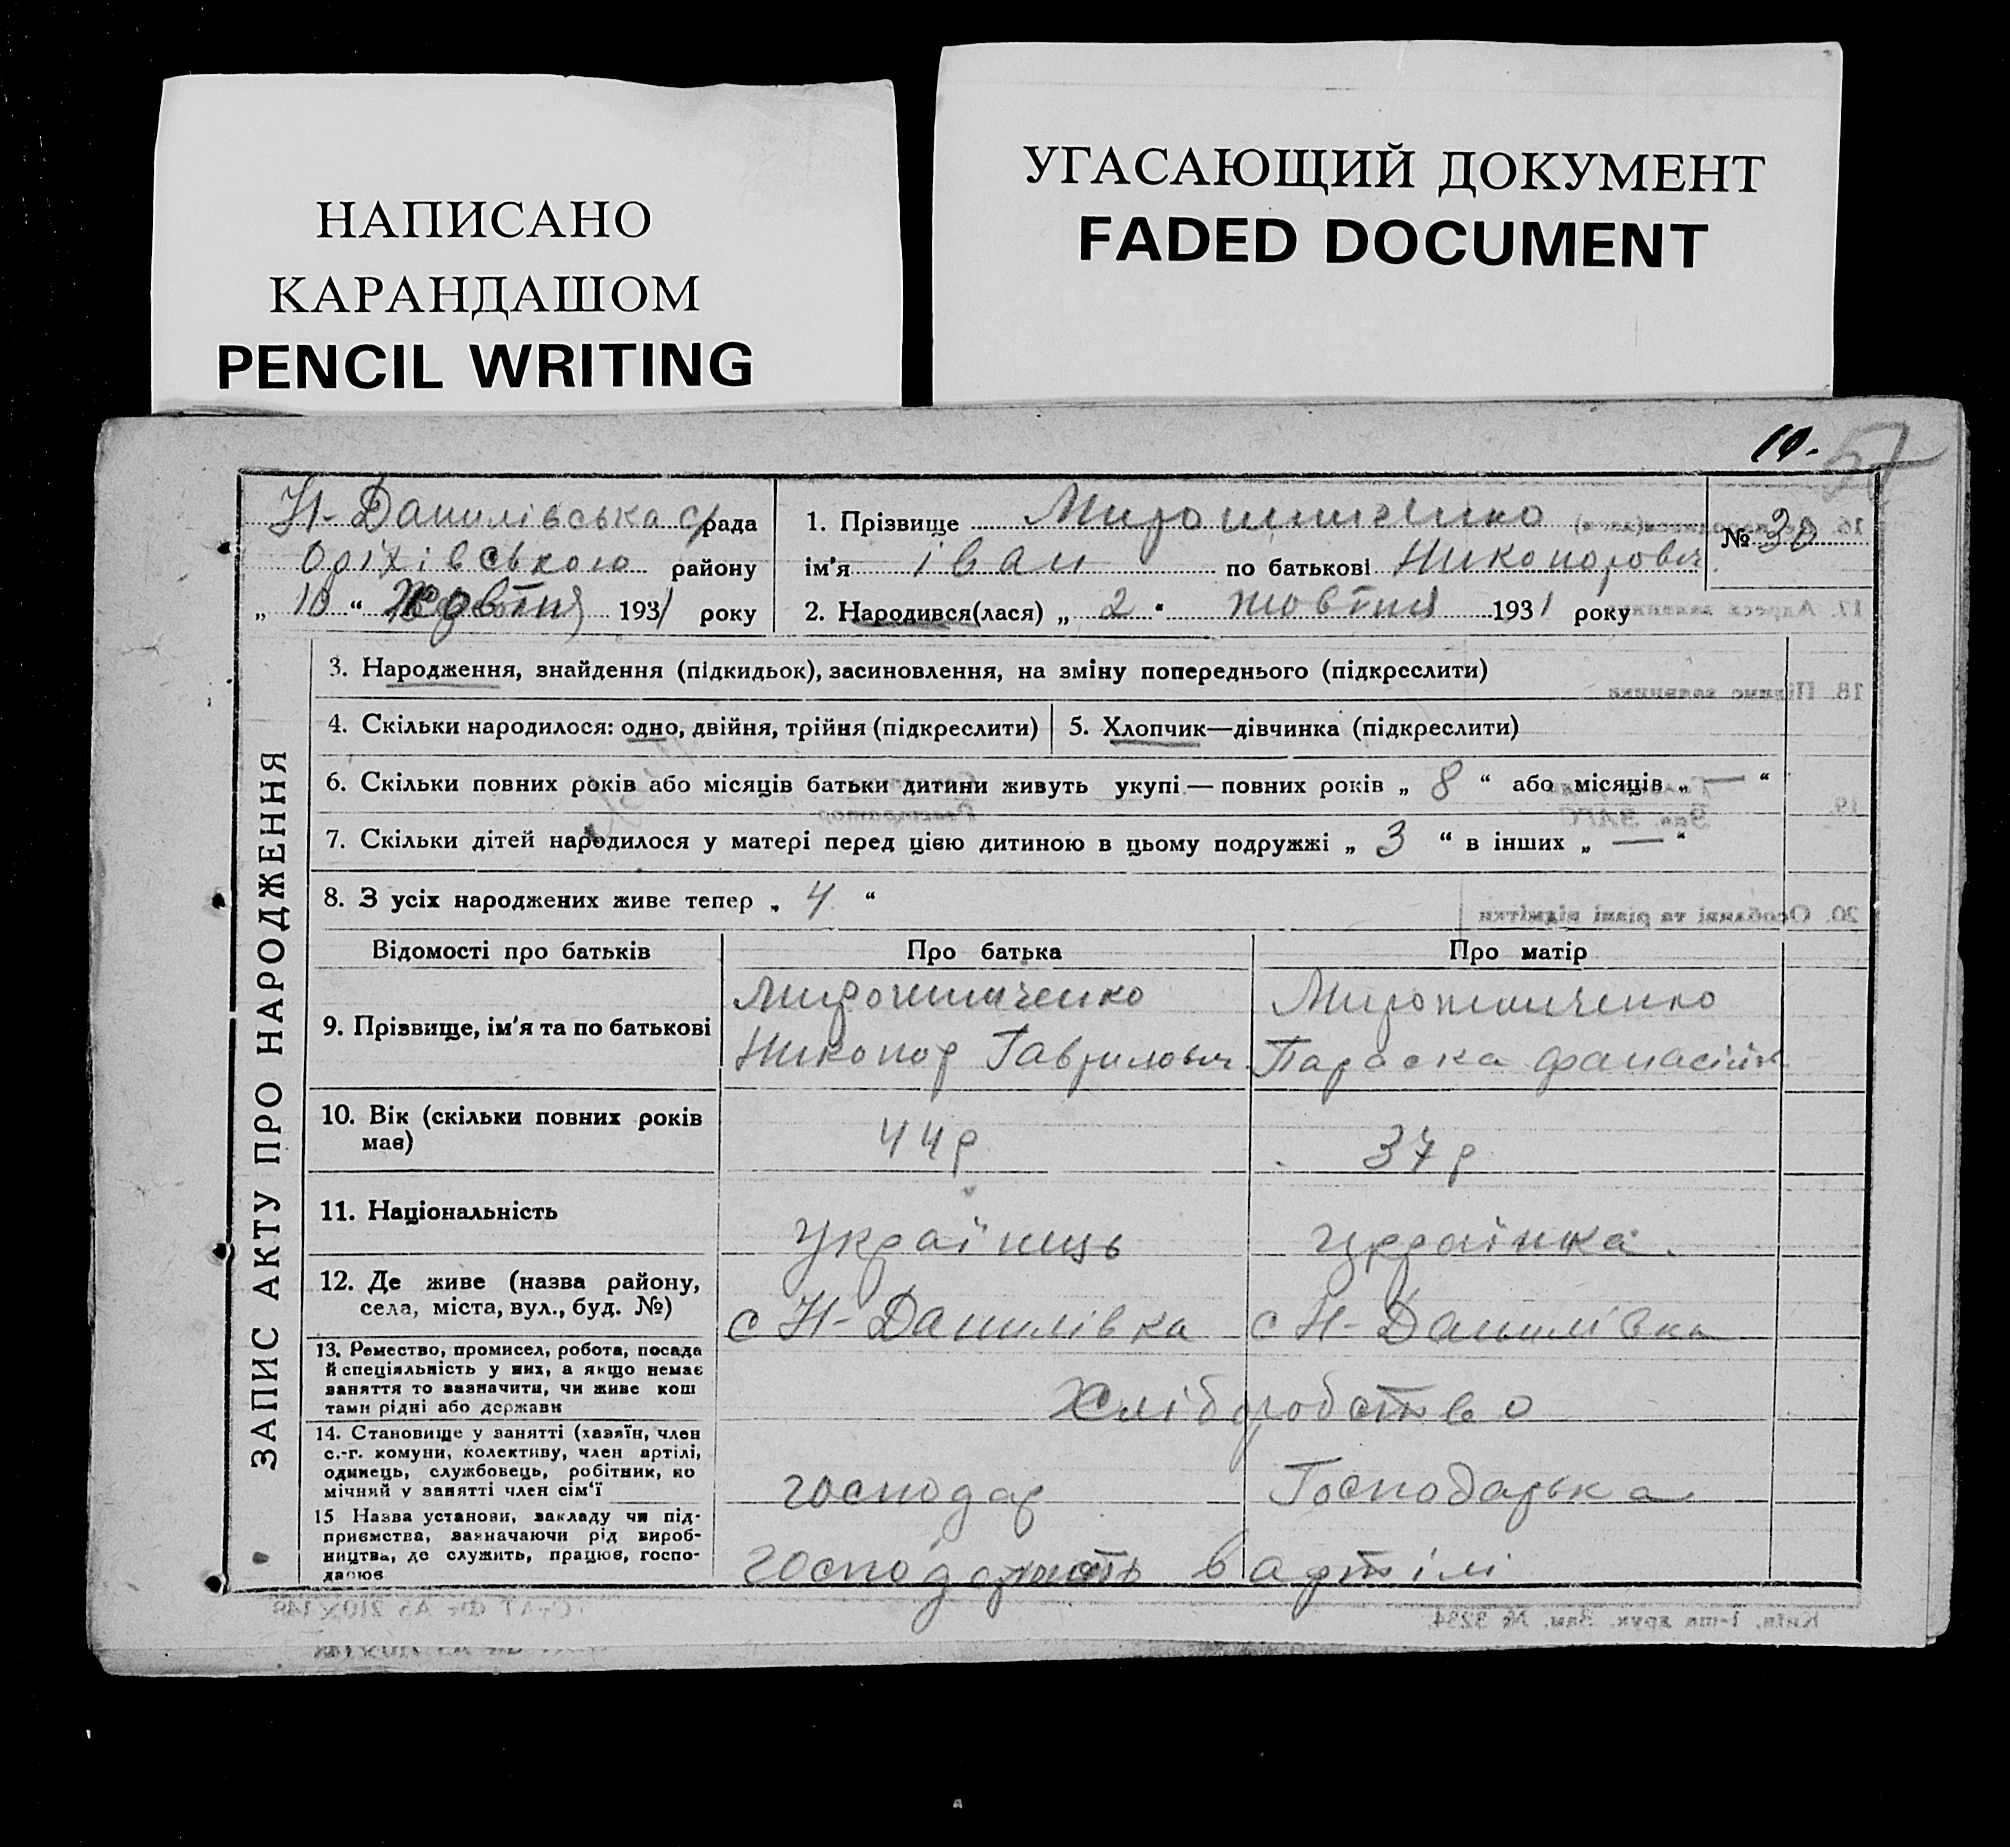 НАПИСАНО
КАРАНДАШОМ
PENCIL WRITING
УГАСАЮЩИЙ ДОКУМЕНТ
FADED DOCUMENT
10.
57
ЗАПИС АКТУ ПРО НАРОДЖЕННЯ
Н-Данилівська с/рада
Оріхівського району
„ 10 “ Жовтня 1931 року
1. Прізвище Мирошниченко
ім'я Іван по батькові Никопорович
2. Народився(лася) „ 2 “ жовтня 1931 року
№ 30
3. Народження, знайдення (підкидьок), засиновлення, на зміну попереднього (підкреслити)
4. Скільки народилося: одно, двійня, трійня (підкреслити)
5. Хлопчик—дівчинка (підкреслити)
6. Скільки повних років або місяців батьки дитини живуть укупі — повних років „ 8 “ або місяців „ — “
7. Скільки дітей народилося у матері перед цією дитиною в цьому подружжі „ 3 “ в інших „ — “
8. З усіх народжених живе тепер „ 4 “
Відомості про батьків Про батька Про матір
9. Прізвище, ім'я та по батькові
Мирошниченко
Никопор Гаврилович
Мирошниченко
Параска Фанасіївн
10. Вік (скільки повних років
має)
44 р
37 р
11. Національність
Українець
Українка.
12. Де живе (назва району,
села, міста, вул., буд. №)
с Н-Данилівка
с Н-Данилівка
13. Ремество, промисел, робота, посада
й спеціяльність у них, а якщо немає
заняття то зазначити, чи живе кош
тами рідні або держави
Хліборобство
14. Становище у занятті (хазяїн, член
с.-г. комуни, колективу, член артілі,
одинець, службовець, робітник, по
мічний у занятті член сім'ї
господар
Господарька
15 Назва установи, закладу чи під-
приємства, зазначаючи рід вироб-
ництва, де служить, працює, госпо-
дарює
господарють в артілі
16.
17. Адреса заявника
18. Підпис заявника
19.
Зав. ЗАГС
Реєстратор
20. Особливі та різні відмітки
СтАТ Фт А5 210×148
Київ, 1-ша друк. Зам. № 3234.